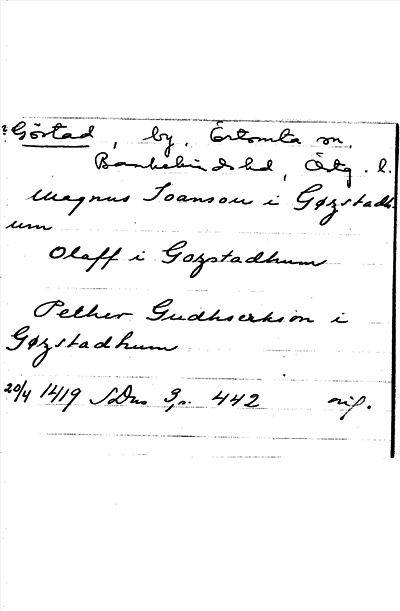 ? Görstad, by, Örtomta sn,
Bankekinds hd, Östg. l.
Magnus Joanson i Gøzstadh-
um
Olaff i Gozstadhum
Pether Gudhserkson i
Gøzstadhum
20/4 1419 SDns 3, s. 442 orig.